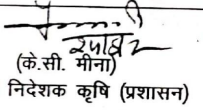 (के.सी. मीना)
निदेशक कृषि (प्रशासन)